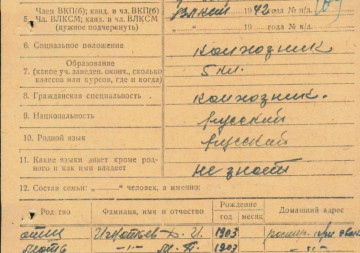 Член ВКП(б); канд. в чл. ВКП(б) 1942 года
5. Чл. ВЛКСМ; канд. в чл. ВЛКСМ
(нужное подчеркнуть) 19 года №
6. Социальное положение колхозник
Образование
7. (какое уч. заведен. оконч., сколько 5 кл.
классов или курсов, где и когда)
8. Гражданская специальность колхозник.
9. Национальность русский
10. Родной язык русский
11. Какие языки знает кроме род-
ного и как ими владеет не знает
12. Состав семьи: „ “ человек, а именно:
Родство Фамилия, имя и отчество Рождение Домашний адрес
год месяц
отец И. 1903
мать -„- 1907 -„-